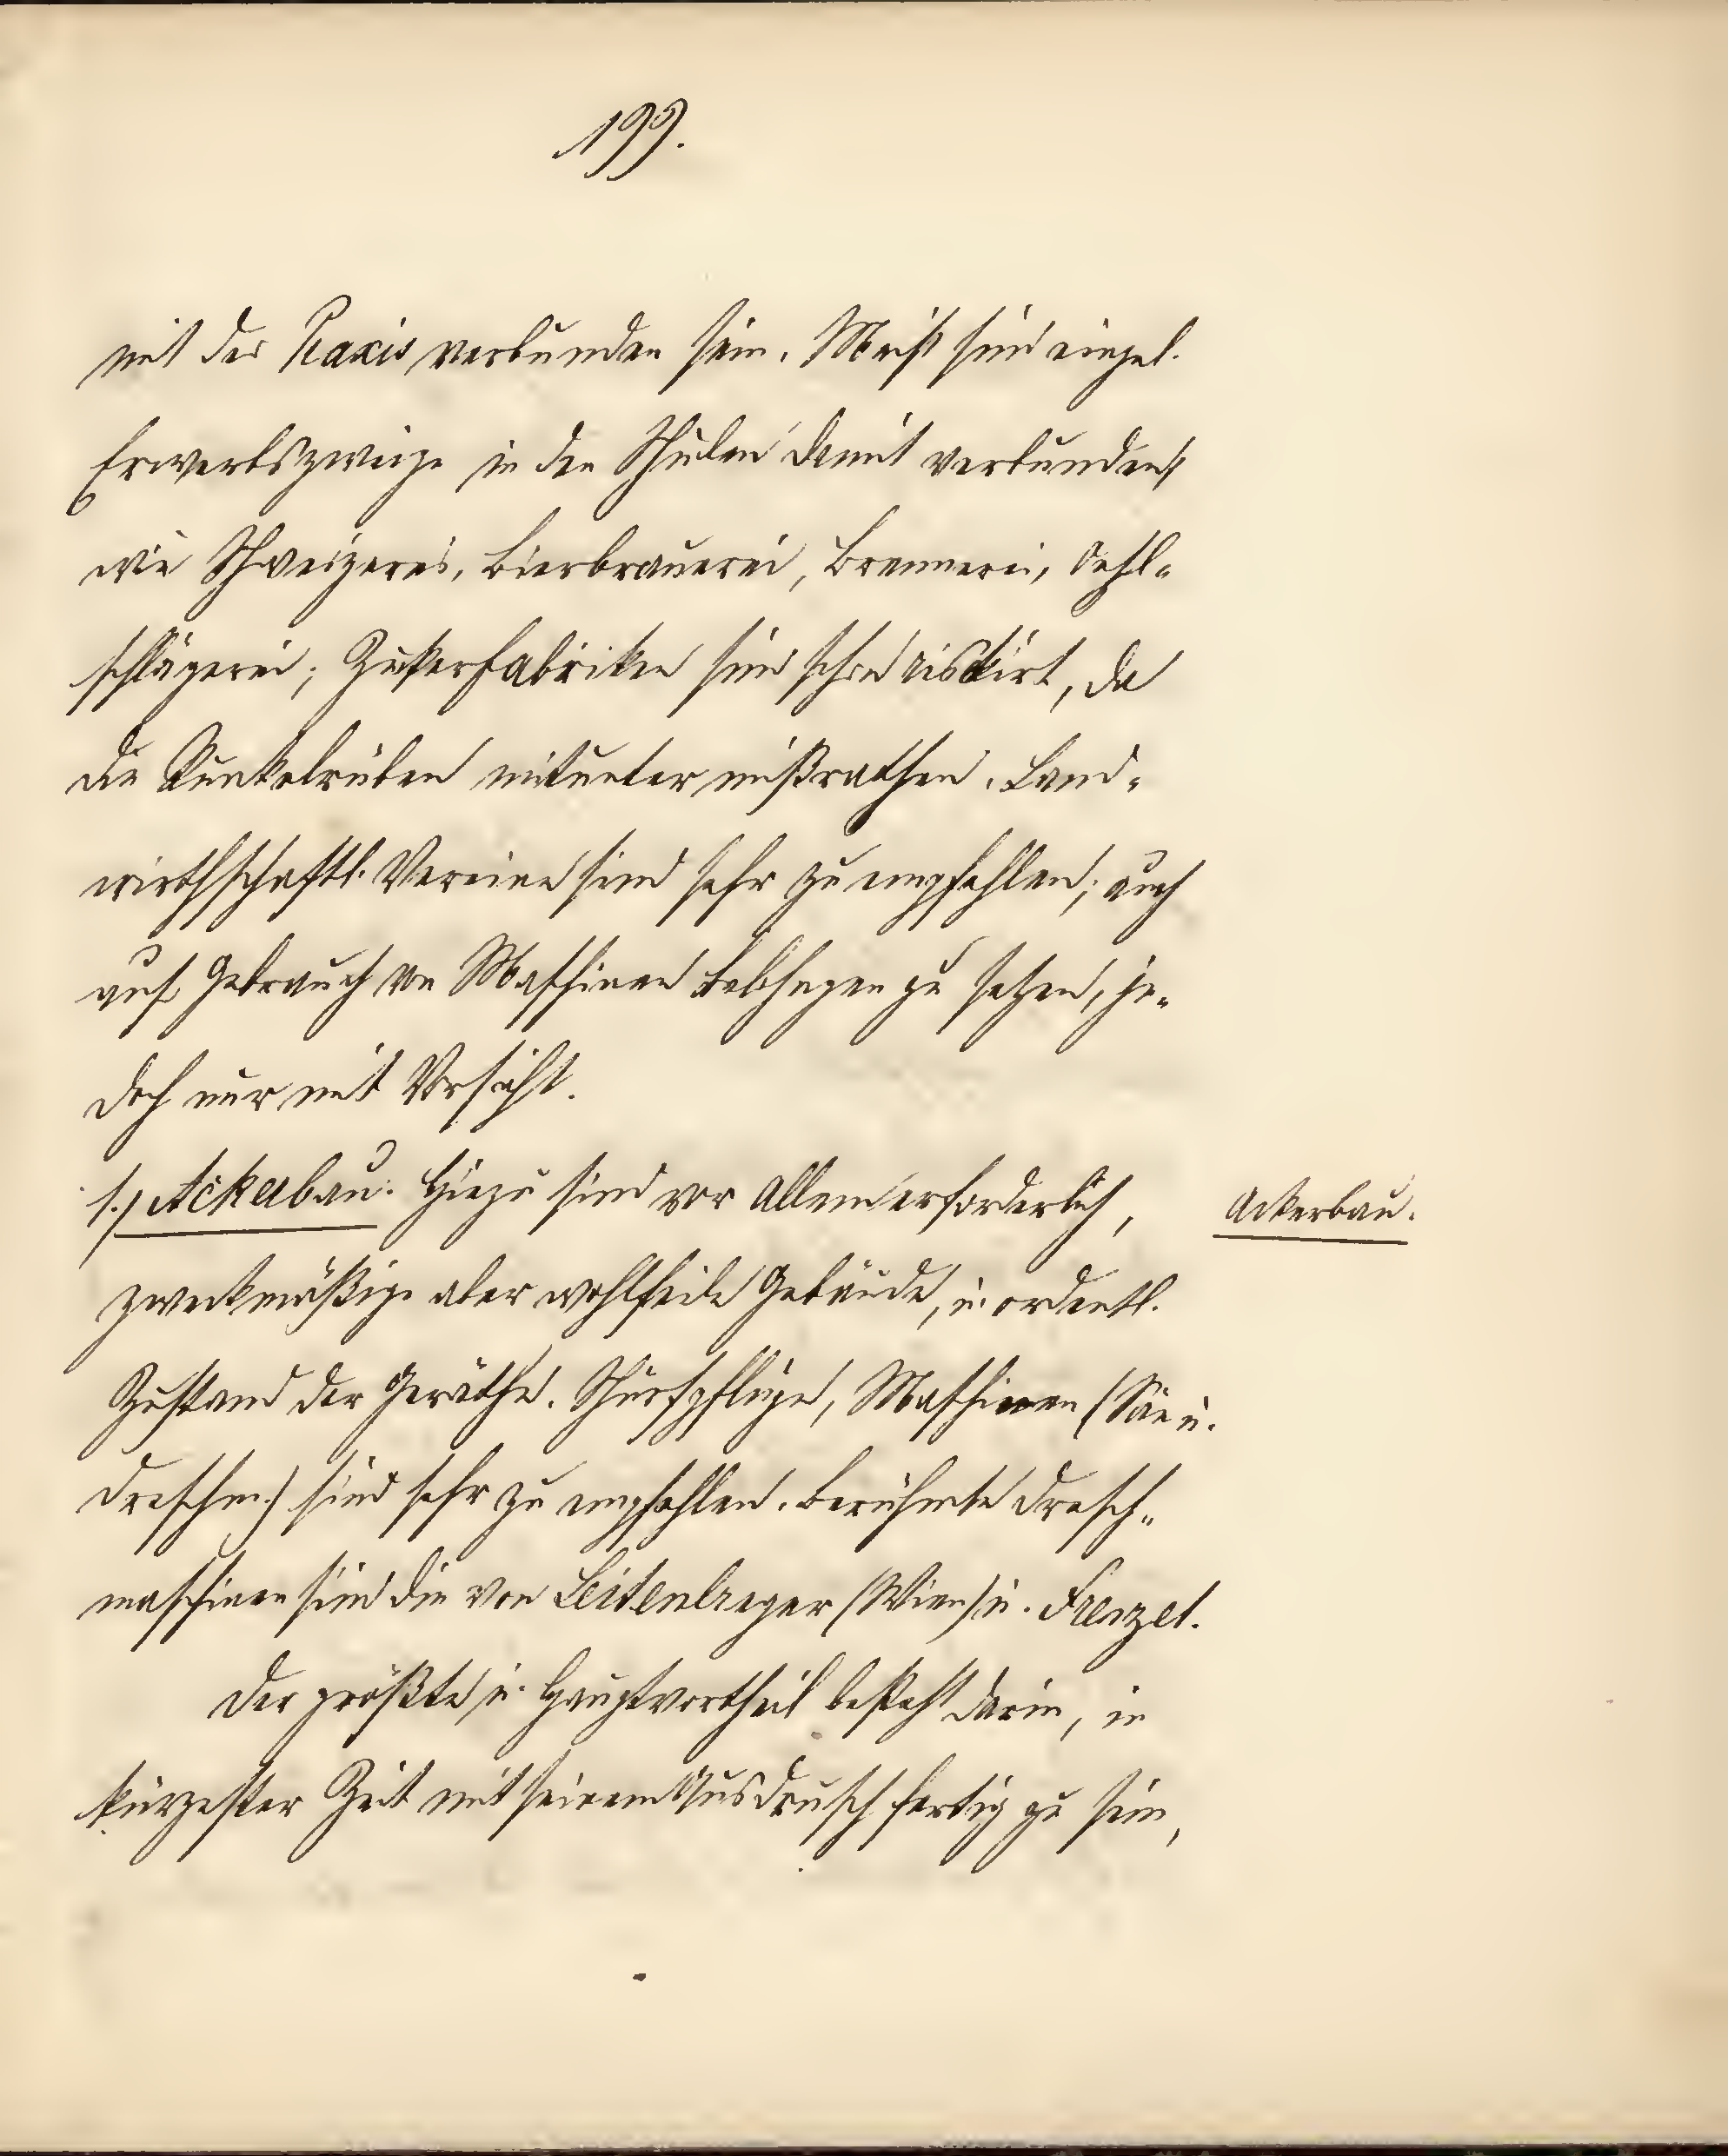 199.
mit der Praxis verbunden sein. Meist sind einzel.
Erwerbszweige in den Schulen damit verbunden,
wie Schweizerei, Bierbrauerei, Brennerei, Oehl-
schlägerei; Zukerfabriken sind schon riskirt, da
die Runkelrüben mitunter mißrathen. Land-
wirthschaftl. Vereine sind sehr zu empfehlen; auch
auf Gebrauch von Maschinen zu setzen, je-
doch nur mit Vorsicht.
1.) Ackerbau. Hiezu sind vor Allem erforderlich,
Ackerbau.
zweckmäßige aber wohlfeile Gebäude, u. ordentl.
Zustand der Geräthe. Schürfpflüge, Maschinen (Säe u.
Dreschm.) sind sehr zu empfehlen. Berühmte Dresch-
maschinen sind die von (Wien) u. Frenzel.
Der größte u. Hauptvortheil besteht darin, in
kürzester Zeit mit seinem Ausdrusch fertig zu sein,